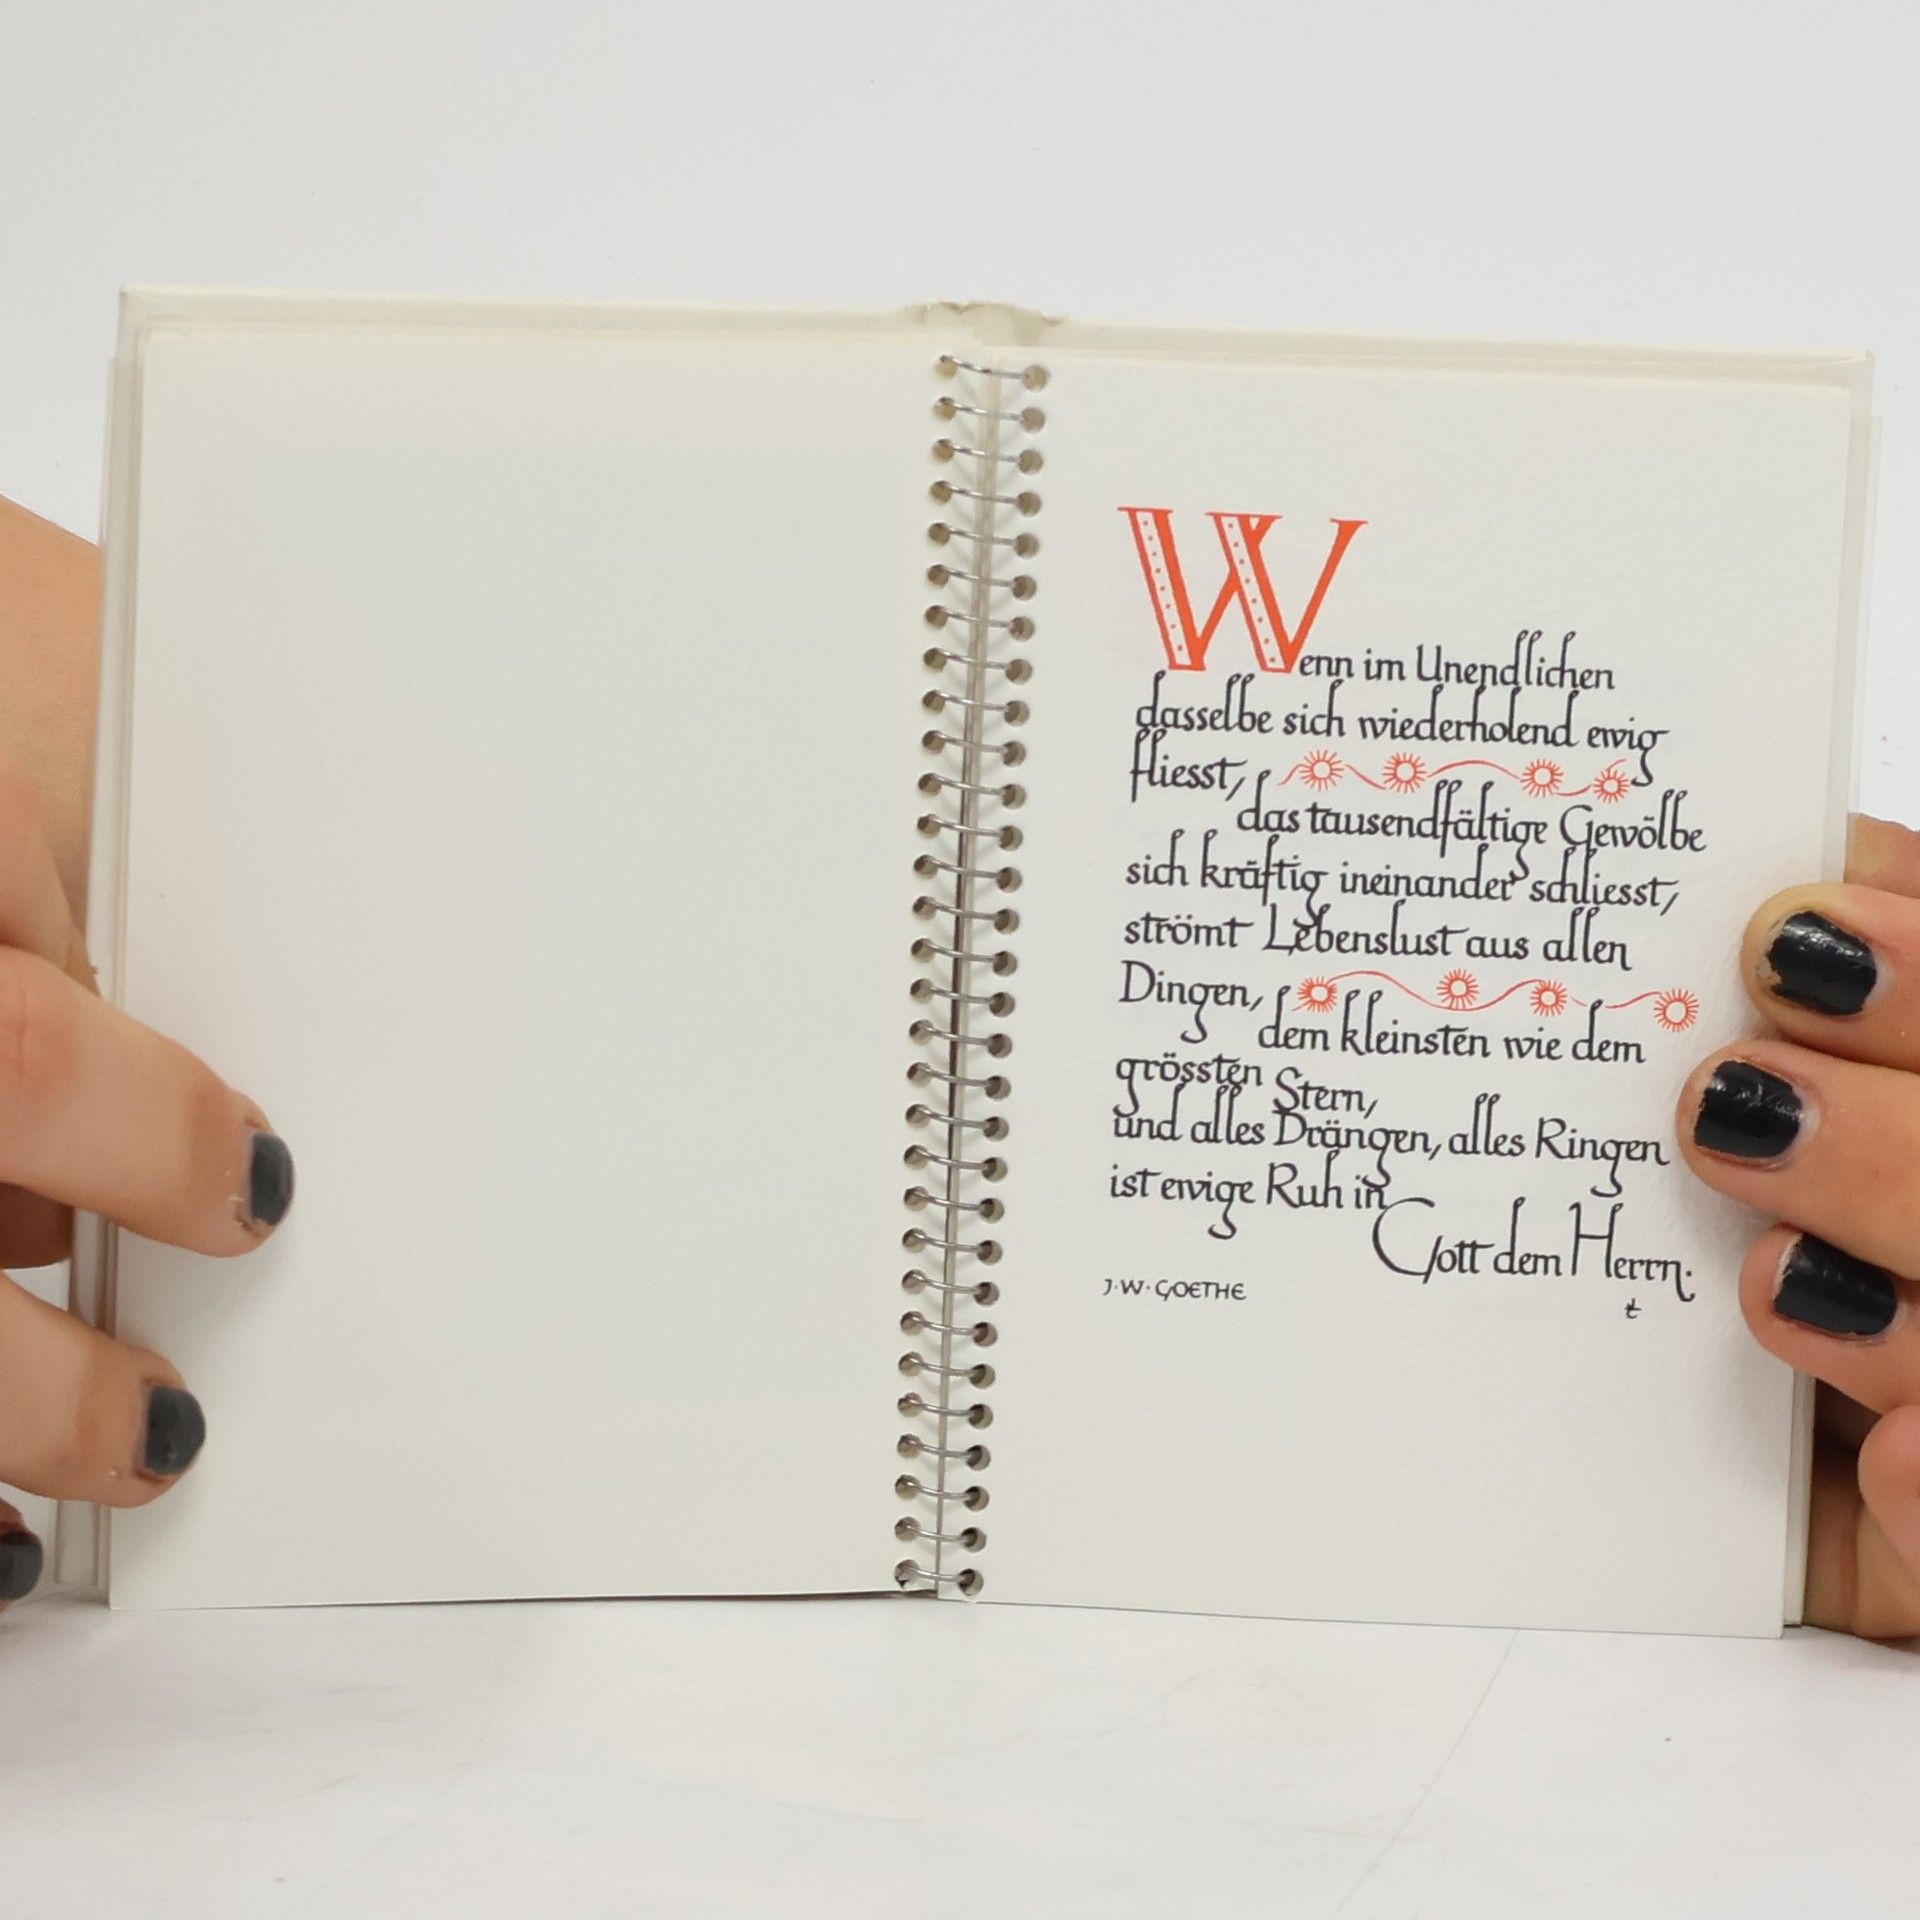 Wenn im Unendlichen
dasselbe sich wiederholend ewig
fliesst,
das tausendfältige Gewölbe
sich kräftig ineinander schliesst,
strömt Lebenslust aus allen
Dingen,
dem kleinsten wie dem
grössten Stern,
und alles Drängen, alles Ringen
ist ewige Ruh in
Gott dem Herrn.
J·W·GOETHE